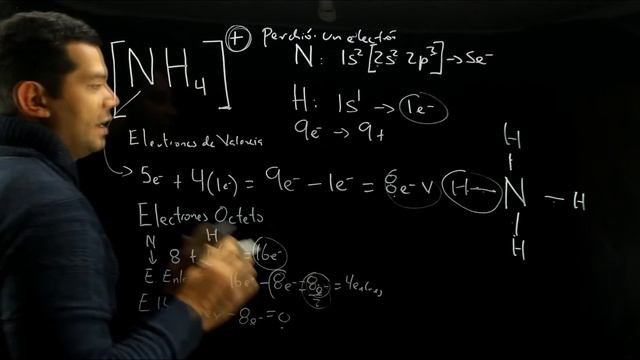 [NH4]+ Perdió un electrón
N: 1s² [2s² 2p³] → 5e⁻
H: 1s¹ → 1e⁻
9e⁻ → 9+
Electrones de Valencia
5e⁻ + 4(1e⁻) = 9e⁻ - 1e⁻ = 8e⁻ v
Electrones Octeto
N H
↓ 8 + = 16e⁻
E. 16e⁻ - 8e⁻ = 8e⁻/2 = 4 enlaces
- 8e⁻ = 0
H
H — N — H
H